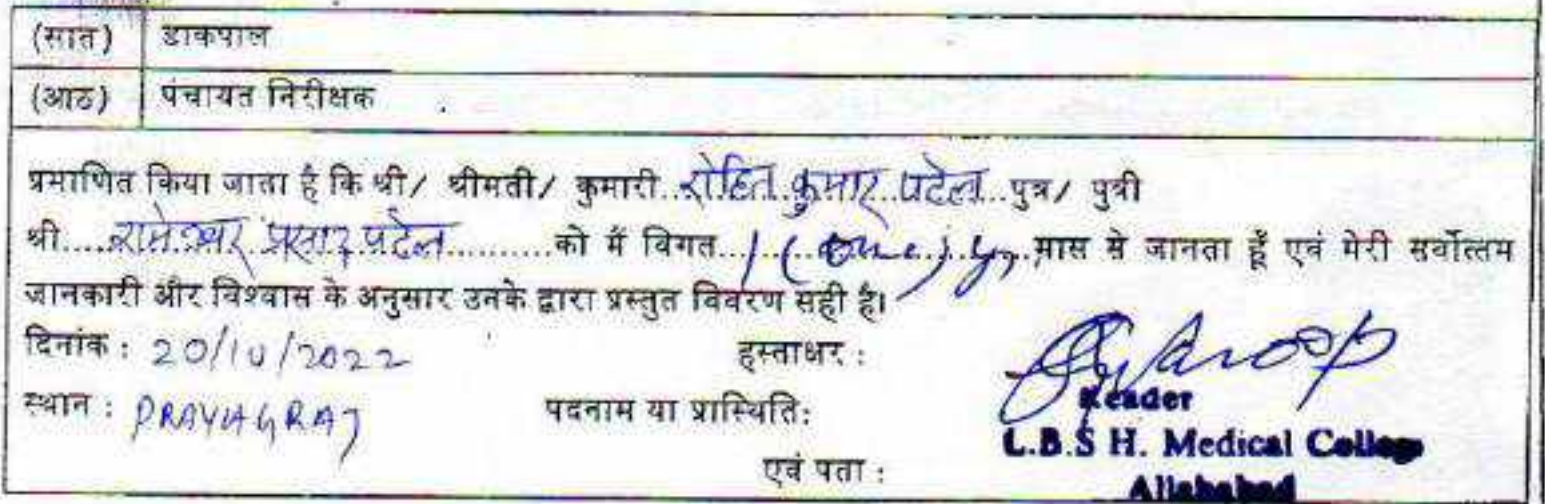 (सात) डाकपाल
(आठ) पंचायत निरीक्षक
प्रमाणित किया जाता है कि श्री/ श्रीमती/ कुमारी..रोहित कुमार पटेल..पुत्र/ पुत्री
श्री.....रामेश्वर प्रसाद पटेल..........को मैं विगत...1 (one) yr,.मास से जानता हूँ एवं मेरी सर्वोत्तम
जानकारी और विश्वास के अनुसार उनके द्वारा प्रस्तुत विवरण सही है।
दिनांक : 20/10/2022 हस्ताक्षर :
स्थान : PRAYAGRAJ पदनाम या प्रास्थिति: Reader
L.B.S H. Medical College
एवं पता : Allahabad